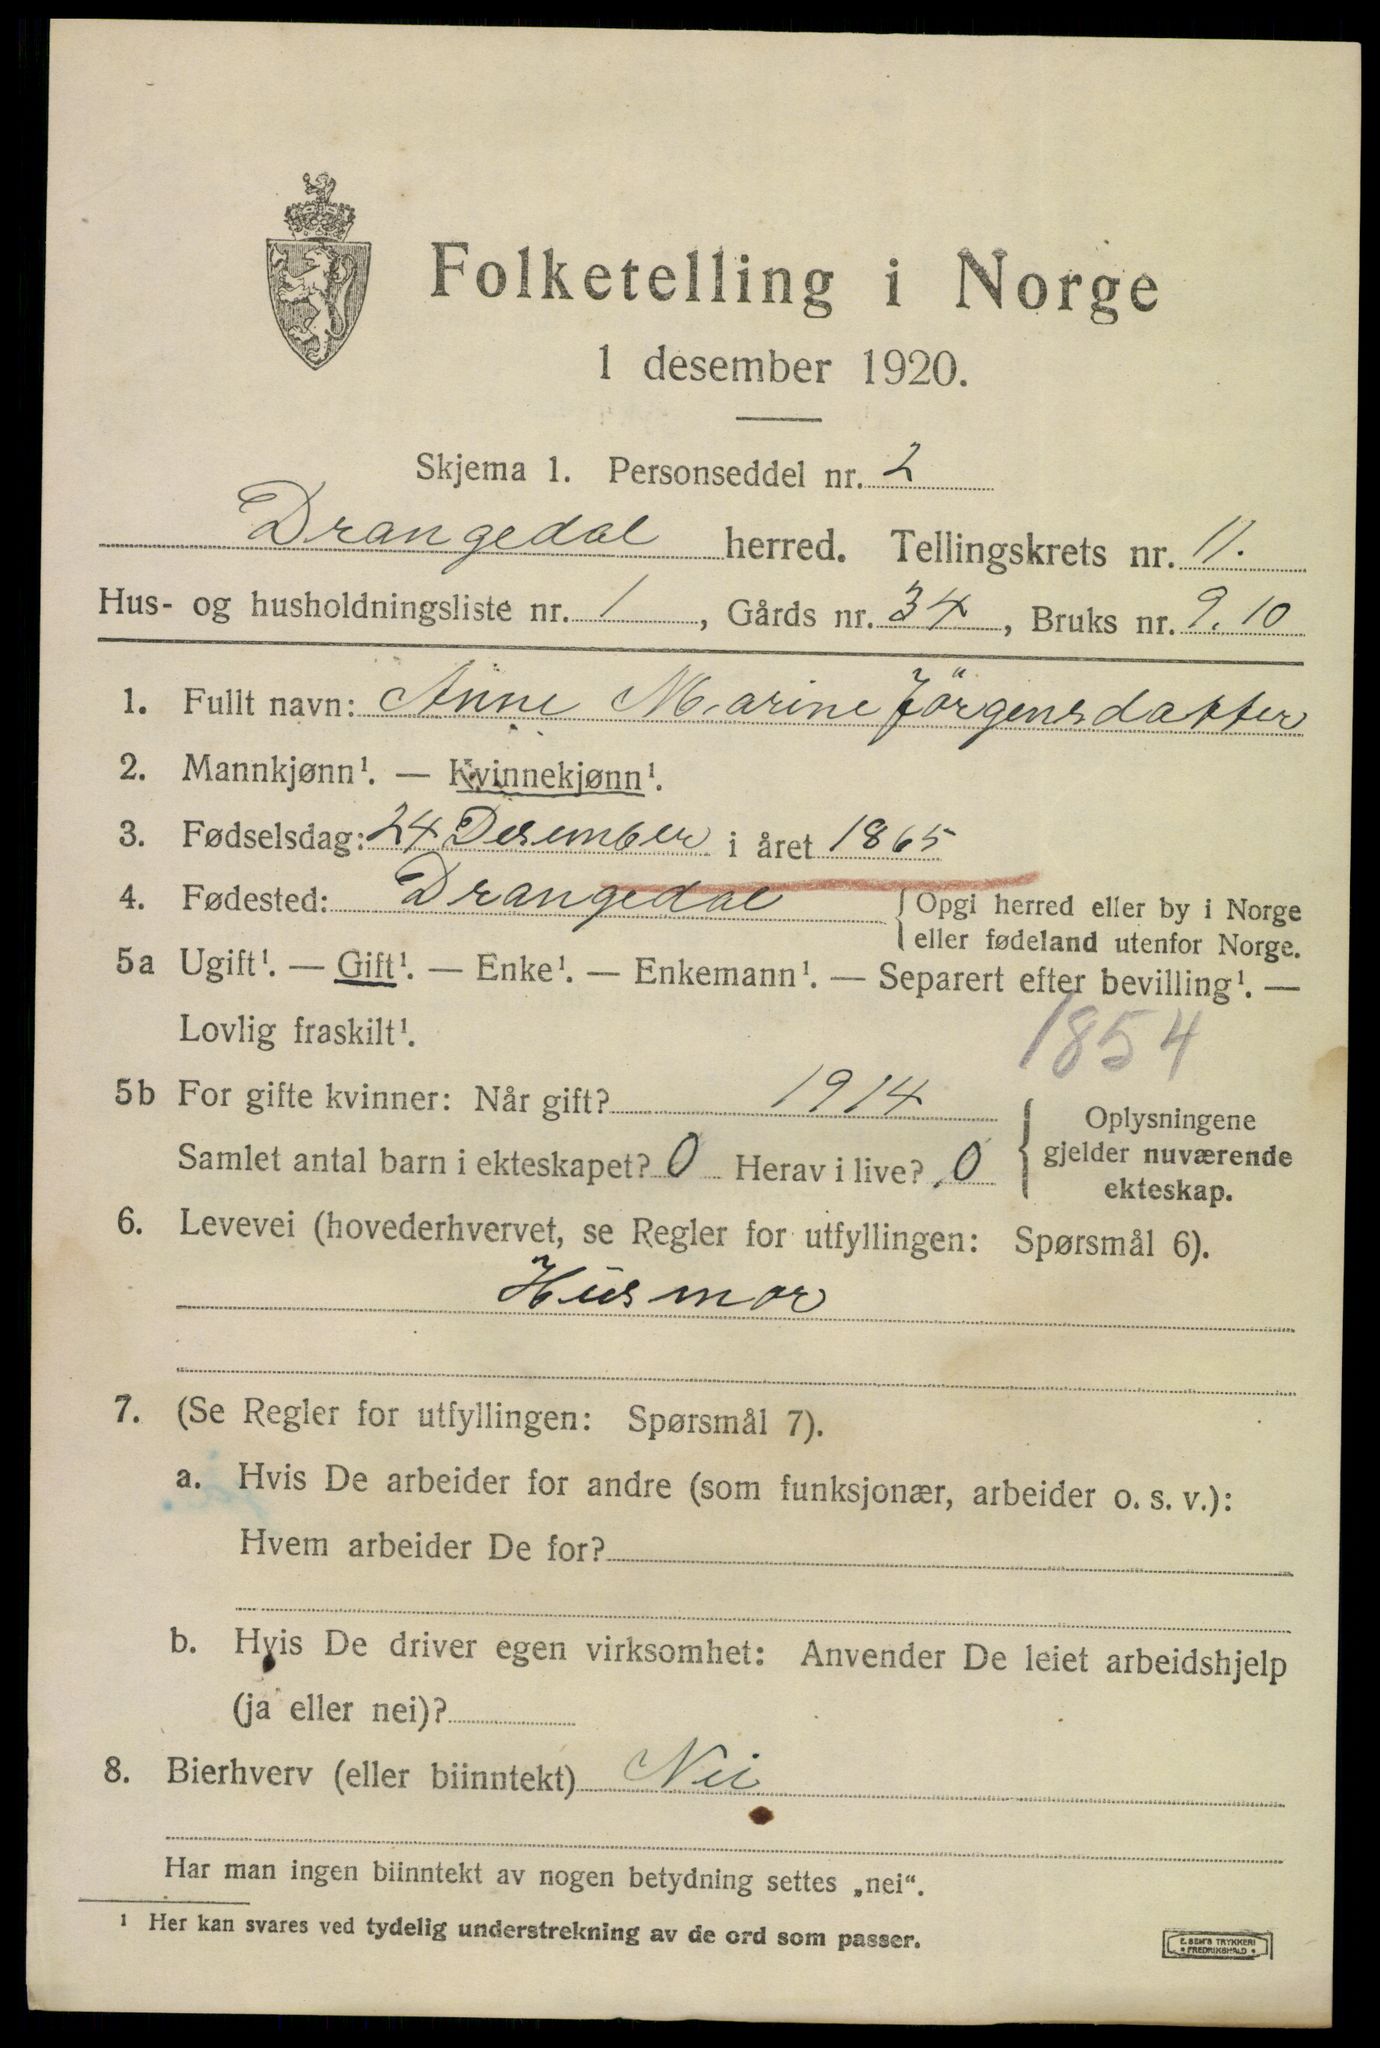 Folketelling i Norge
1 desember 1920.
Skjema 1. Personseddel nr. 2
Drangedal herred. Tellingskrets nr. 11.
Hus- og husholdningsliste nr. 1, Gårds nr. 34, Bruks nr. 9.10
1. Fullt navn: Anne Marine Jörgensdatter
2. Mannkjønn¹. — Kvinnekjønn¹.
3. Fødselsdag: 24 Desember i året 1865
4. Fødested: Drangedal { Opgi herred eller by i Norge
eller fødeland utenfor Norge.
5a Ugift¹. — Gift¹. — Enke¹. — Enkemann¹. — Separert efter bevilling¹. —
Lovlig fraskilt¹.
1854
5b For gifte kvinner: Når gift? 1914
Samlet antal barn i ekteskapet? 0 Herav i live? 0
{ Oplysningene
gjelder nuværende
ekteskap.
6. Levevei (hovederhvervet, se Regler for utfyllingen: Spørsmål 6).
Husmor
7. (Se Regler for utfyllingen: Spørsmål 7).
a. Hvis De arbeider for andre (som funksjonær, arbeider o. s. v.):
Hvem arbeider De for?
b. Hvis De driver egen virksomhet: Anvender De leiet arbeidshjelp
(ja eller nei)?
8. Bierhverv (eller biinntekt) Nei
Har man ingen biinntekt av nogen betydning settes „nei“.
¹ Her kan svares ved tydelig understrekning av de ord som passer.
E. SEM'S TRYKKERI
• FREDRIKSHALD •